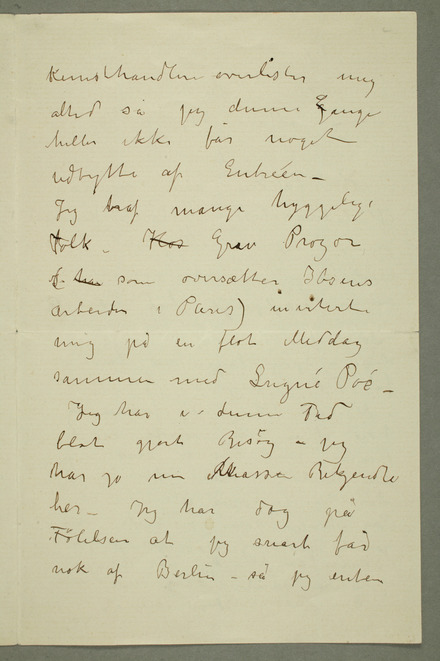 Kunsthandlere overlister mig
altid så jeg denne Gange
heller ikke får noget
udbytte af Entréen –
Jeg traf mange hyggelige
Folk – Kos Grev Prozor
(som oversætter Ibsens
arbeider i Paris) inviterte
mig på en flot Middag
sammen med Lugné Poë –
Jeg har i denne Tid
blot gjort Besøg – jeg
har jo en Masse Bekjendte
her – Jeg har dog på
Følelsen at jeg snart får
nok af Berlin – så jeg enten